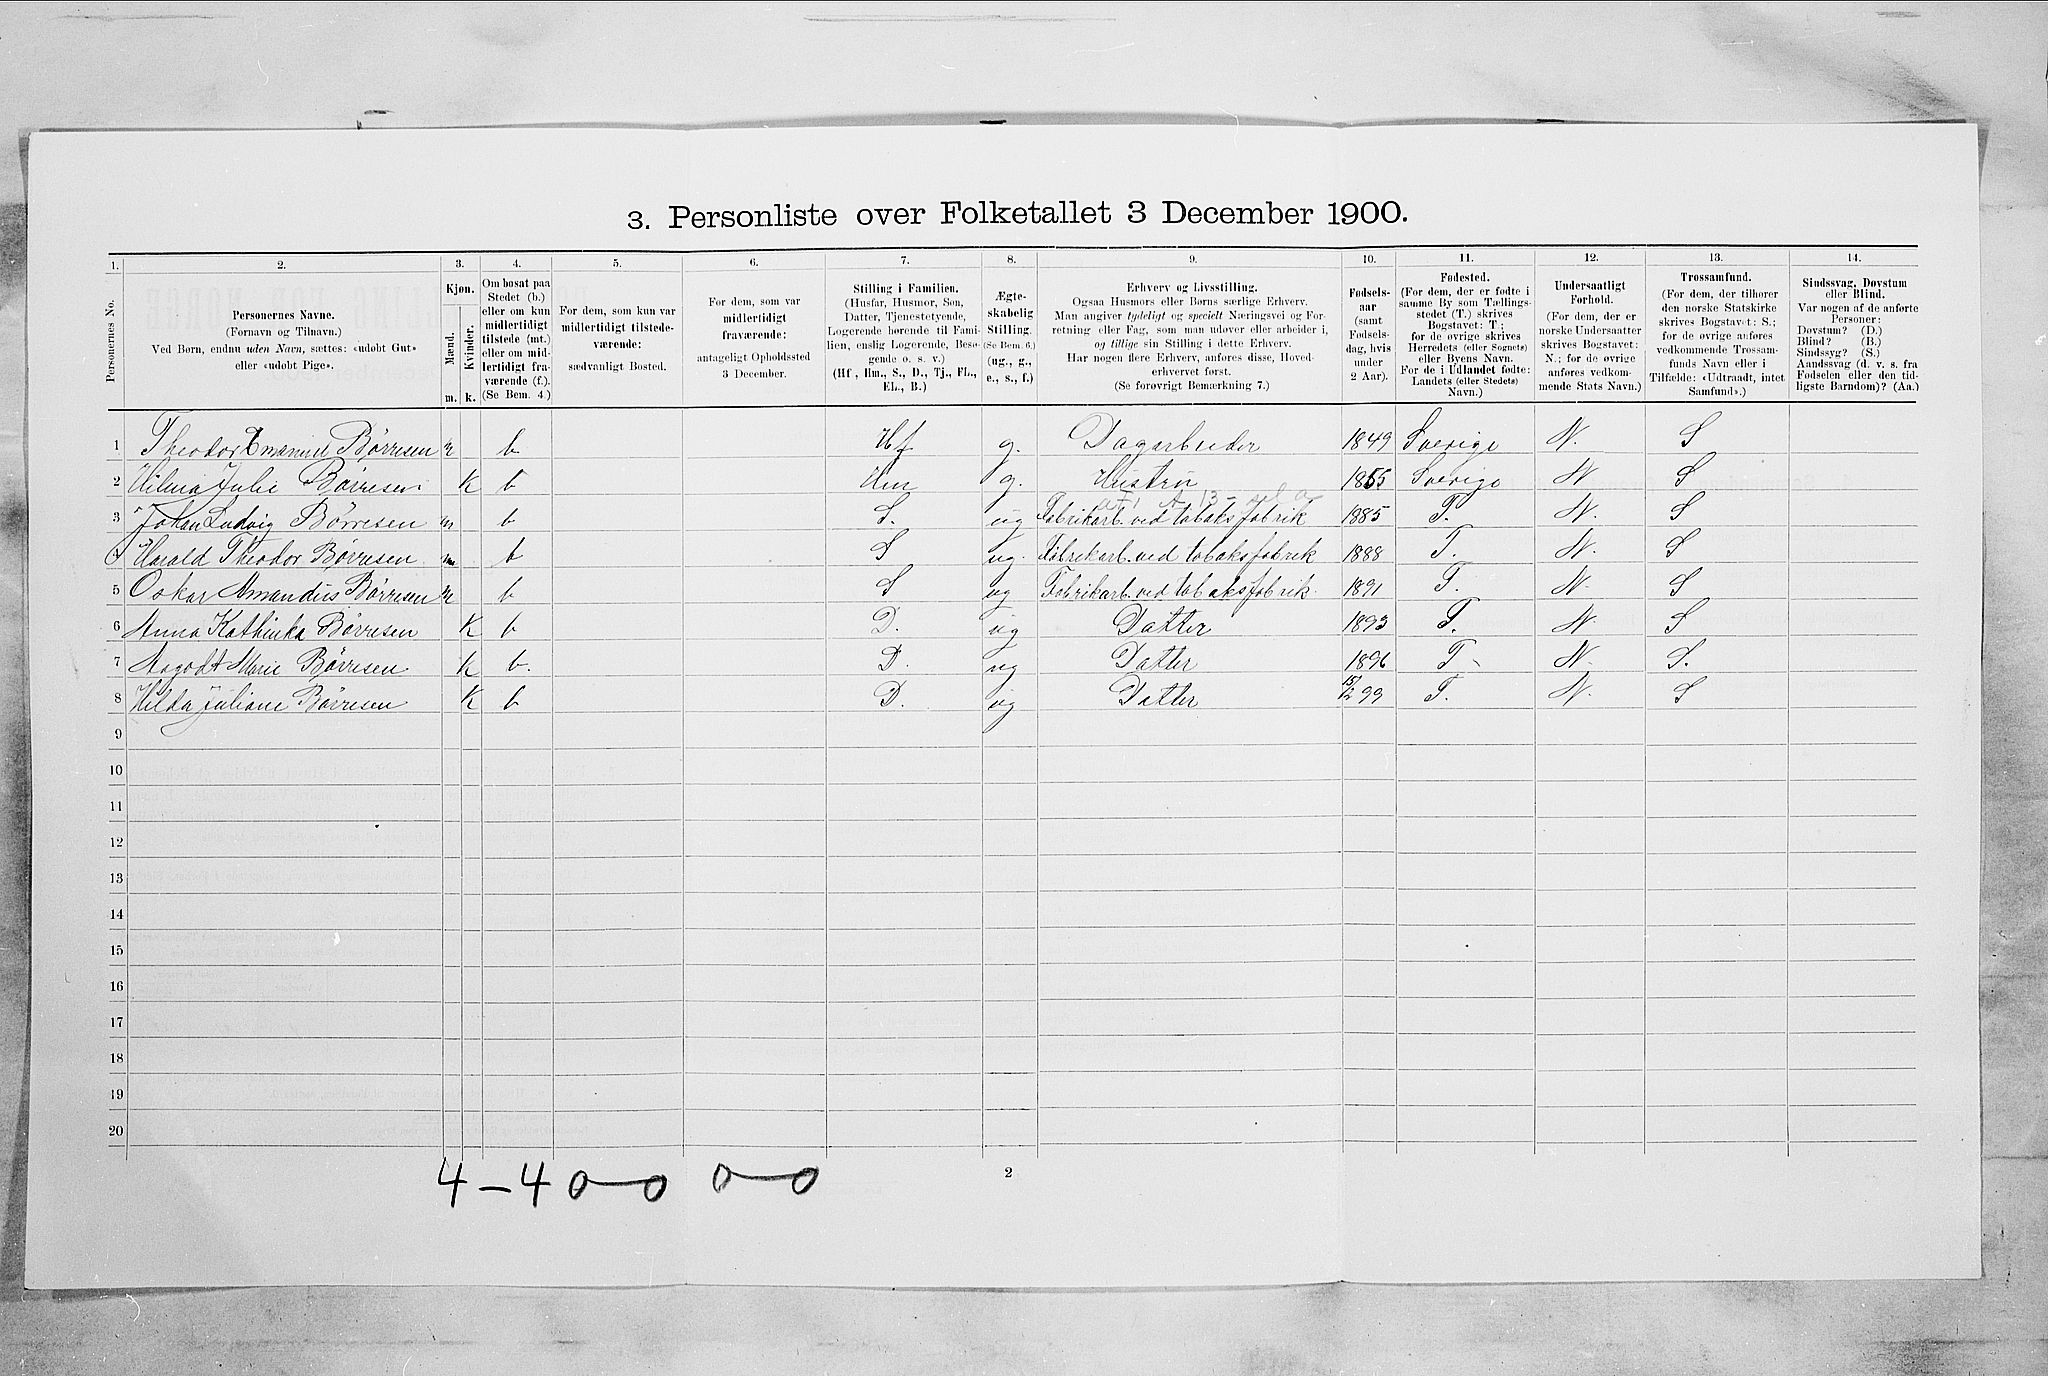 3. Personliste over Folketallet 3 December 1900.
1. 2. 3. 4. 5. 6. 7. 8. 9. 10. 11. 12. 13. 14.
Personernes No.
Personernes Navne.
(Fornavn og Tilnavn.)
Ved Børn, endnu uden Navn, sættes: «udøbt Gut»
eller «udøbt Pige».
Kjøn.
Mænd.
Kvinder.
m. k.
Om bosat paa
Stedet (b.)
eller om kun
midlertidigt
tilstede (mt.)
eller om mid-
lertidigt fra-
værende (f.).
(Se Bem. 4.)
For dem, som kun var
midlertidigt tilstede-
værende:
sædvanligt Bosted.
For dem, som var
midlertidigt
fraværende:
antageligt Opholdssted
3 December.
Stilling i Familien.
(Husfar, Husmor, Søn,
Datter, Tjenestetyende,
Logerende hørende til Fami-
lien, enslig Logerende, Besø-
gende o. s. v.)
(Hf., Hm., S., D., Tj., FL.,
EL., B.)
Ægte-
skabelig
Stilling.
(Se Bem. 6.)
(ug., g.,
e., s., f.)
Erhverv og Livsstilling.
Ogsaa Husmors eller Børns særlige Erhverv.
Man angiver tydeligt og specielt Næringsvei og For-
retning eller Fag, som man udøver eller arbeider i,
og tillige sin Stilling i dette Erhverv.
Har nogen flere Erhverv, anføres disse, Hoved-
erhvervet først.
(Se forøvrigt Bemærkning 7.)
Fødsels-
aar
(samt
Fødsels-
dag, hvis
under
2 Aar).
Fødested.
(For dem, der er fødte i
samme By som Tællings-
stedet (T.) skrives
Bogstavet: T;
for de øvrige skrives
Herredets (eller Sognets)
eller Byens Navn.
For de i Udlandet fødte:
Landets (eller Stedets)
Navn.)
Undersaatligt
Forhold.
(For dem, der er
norske Undersaatter
skrives Bogstavet:
N.; for de øvrige
anføres vedkom-
mende Stats Navn.)
Trossamfund.
(For dem, der tilhører
den norske Statskirke
skrives Bogstavet: S.;
for de øvrige anføres
vedkommende Trossam-
funds Navn eller i
Tilfælde: «Udtraadt, intet
Samfund».)
Sindssvag, Døvstum
eller Blind.
Var nogen af de anførte
Personer:
Døvstum? (D.)
Blind? (B.)
Sindssyg? (S.)
Aandssvag (d. v. s. fra
Fødselen eller den tid-
ligste Barndom)? (Aa.)
1 Theodor Emanuel Børresen m b Hf g. Dagarbeider 1849 Sverige N. S
2 Hilma Julie Børresen. K b Hm g. Hustru 1855 Sverige N S
3 Johan Ludvig Børresen m b S. ug Fabrikarb. ved tobaksfabrik 1885 T. N. S
4 Harald Theodor Børresen. m b S ug. Fabrikarb. ved tobaksfabrik 1888 T. N. S
5 Oskar Amandus Børresen m b S ug Fabrikarb. ved tobaksfabrik. 1891 T. N. S
6 Anna Kathinka Børresen K b D. ug Datter 1893 T. N. S
7 Aagodt Marie Børresen K b. D. ug Datter 1896 T. N. S.
8 Hilda Juliane Børresen K b D. ug Datter 15/12 99 T. N. S
9
10
11
12
13
14
15
16
17
18
19
20
4–4 0–0 0–0
2